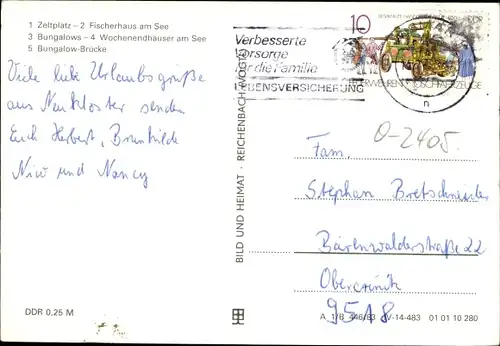 1 Zeltplatz – 2 Fischerhaus am See
3 Bungalows – 4 Wochenendhäuser am See
5 Bungalow-Brücke
Viele liebe Urlaubsgrüße
aus Neukloster senden
Euch Herbert, Brunhilde
Nico und Nancy
DDR 0,25 M
BILD UND HEIMAT · REICHENBACH (VOGTL)
Verbesserte
Vorsorge
für die Familie
LEBENSVERSICHERUNG
10
FEUERWEHREN LÖSCHFAHRZEUGE
O-2405.
Fam.
Stephan Bretschneider
Bärenwalderstraße 22
Obercrinitz
9518
A 1/B 446/83 IV-14-483 01 01 10 280